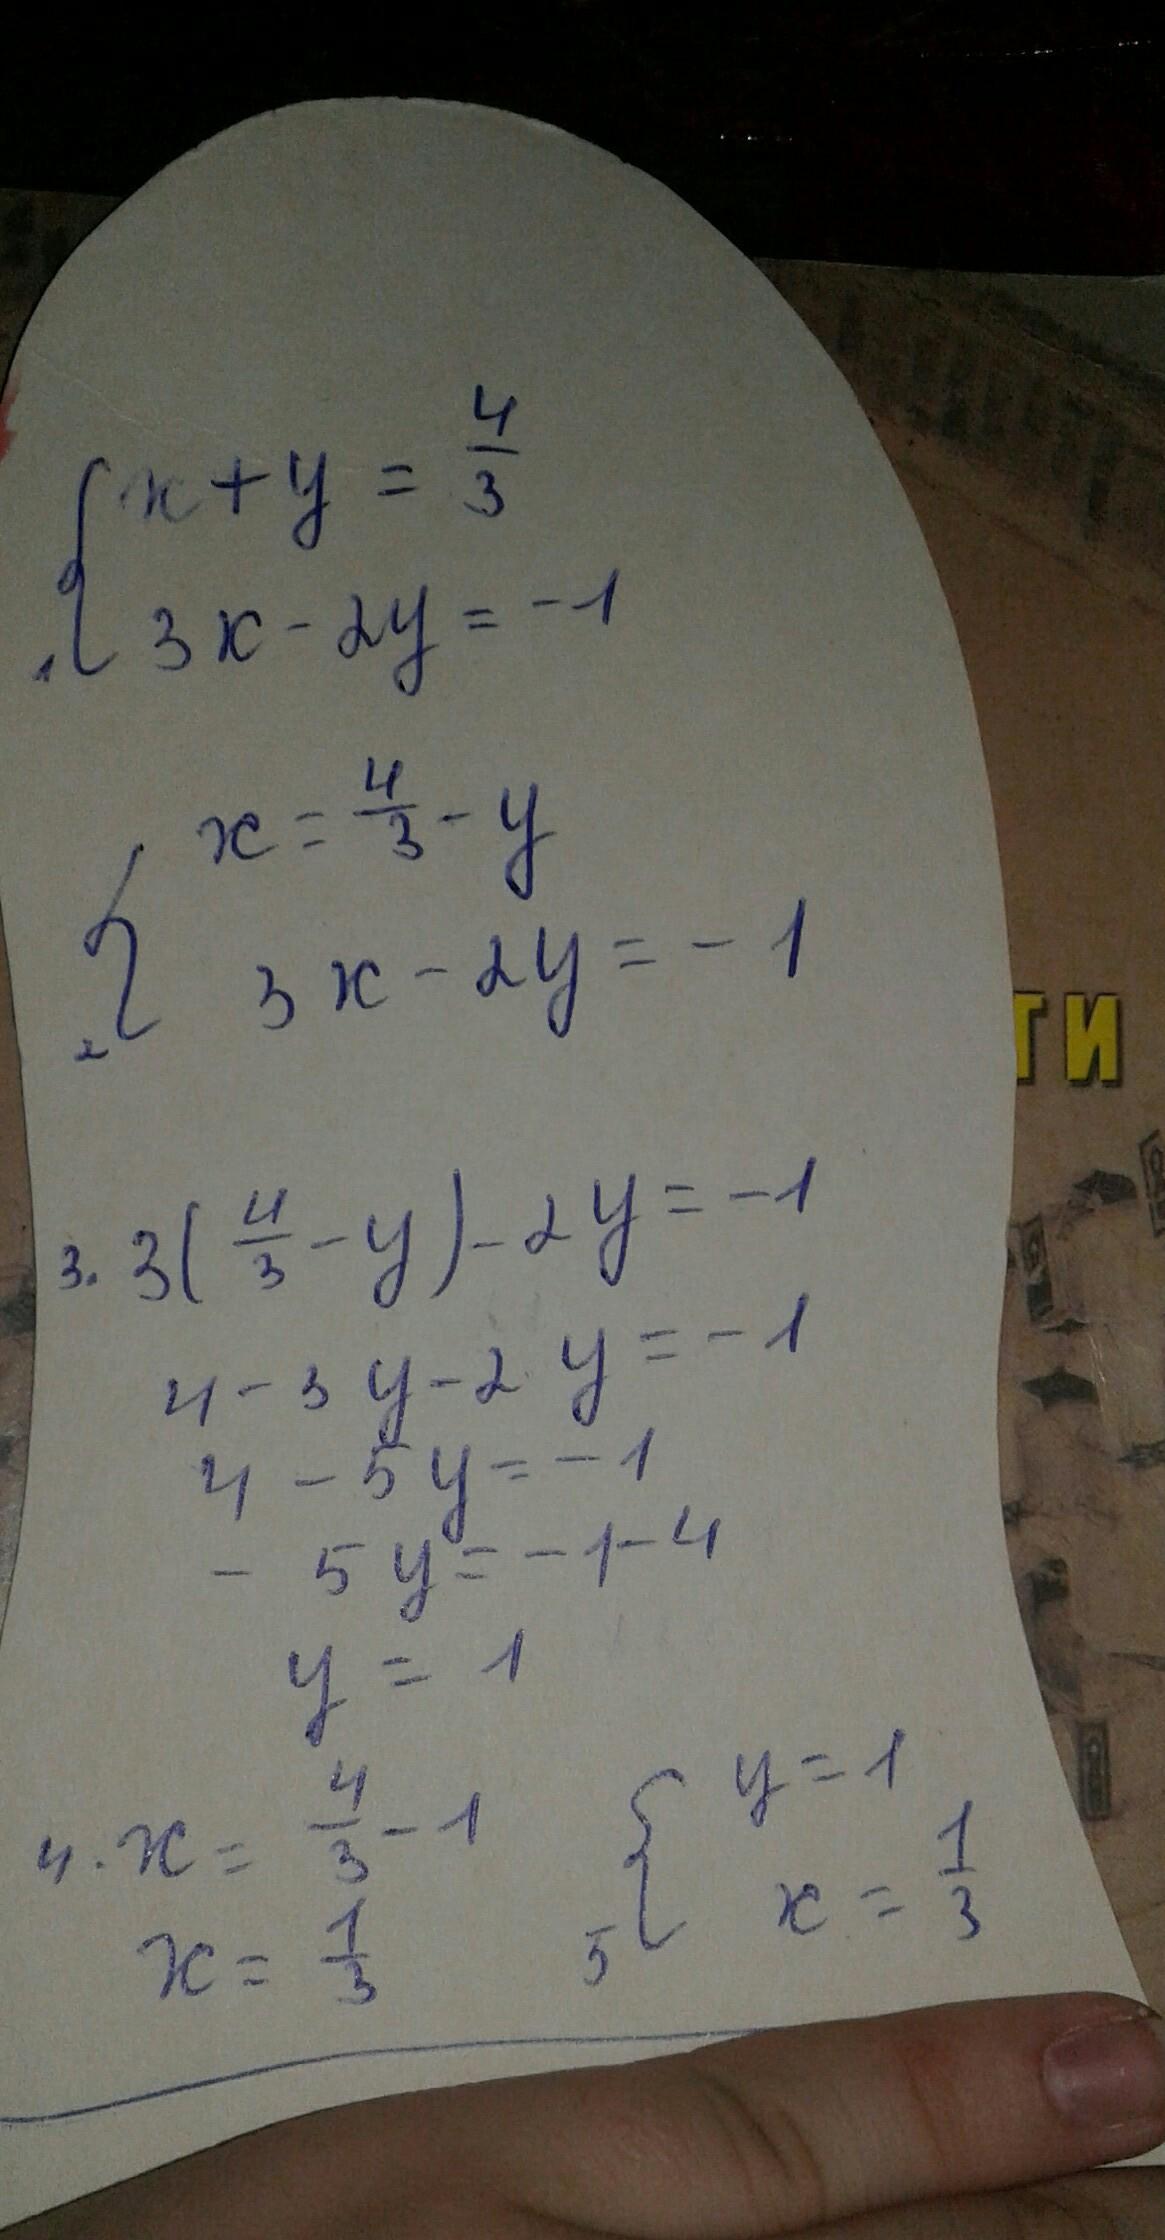 x + y = 4/3
1. 3x - 2y = -1
x = 4/3 - y
2. 3x - 2y = -1
3. 3(4/3 - y) - 2y = -1
4 - 3y - 2y = -1
4 - 5y = -1
- 5y = -1 - 4
y = 1
4. x = 4/3 - 1
x = 1/3
y = 1
5 x = 1/3
ТИ